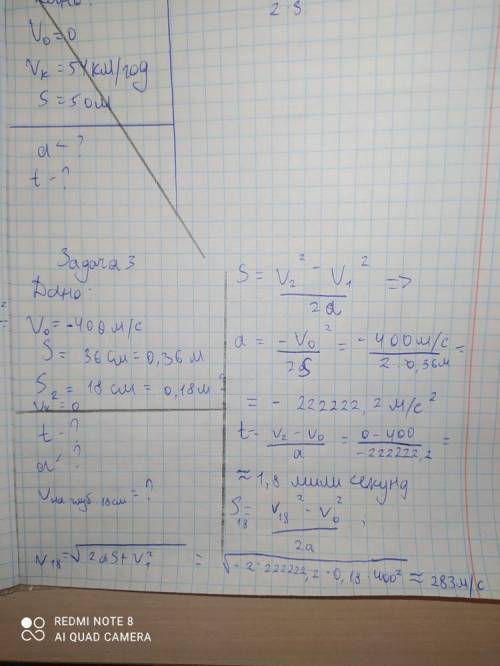 2·S
V₀ = 0
Vк = 54 км/год
S = 50м
a - ?
t - ?
Задача 3
Дано:
V₀ = -400 м/с
S = 36 см = 0,36 м
S₂ = 18 см = 0,18 м
Vк = 0
t - ?
a - ?
V на глуб 18 см = ?
S = V₂² - V₁² / 2a =>
a = -V₀² / 2S = -400 м/с / 2·0,36м =
= -222222,2 м/с²
t = V₂ - V₀ / a = 0 - 400 / -222222,2 =
≈ 1,8 мили секунд
S₁₈ = V₁₈² - V₀² / 2a ,
V₁₈ = √2aS + V₁² = √-2·222222,2·0,18·400² ≈ 283 м/с
REDMI NOTE 8
AI QUAD CAMERA